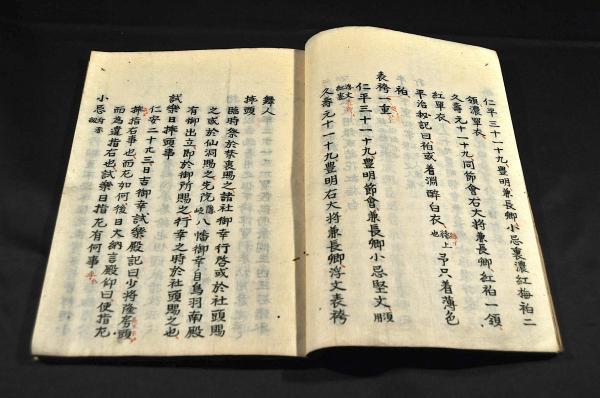 仁平三十一十九豊明兼長卿小忌裏濃紅梅袙二
領濃單衣
久壽元十一十九同節會右大将兼長卿紅袙一領
紅單衣
平治秘記曰袙或着淵醉白衣袴上也予只着薄色
袙
表袴一重
仁平三十一十九豊明節會兼長卿小忌堅文須用
浮文
久壽元十一十九豊明右大将兼長卿浮文表袴
舞人
挿頭
臨時祭於禁裏賜之諸社御幸行啓或於社頭賜
之或於仙洞賜之先院八幡御幸自鳥羽南殿
有御出立即於御所賜之行幸之時於社頭賜之也
試樂日挿頭事
仁安二十九三日吉御幸試樂殿記曰少将隆房頭
挿指右事也而左如何後日大納言殿仰曰使指左
而為違指右也試樂日指左有何事
小忌